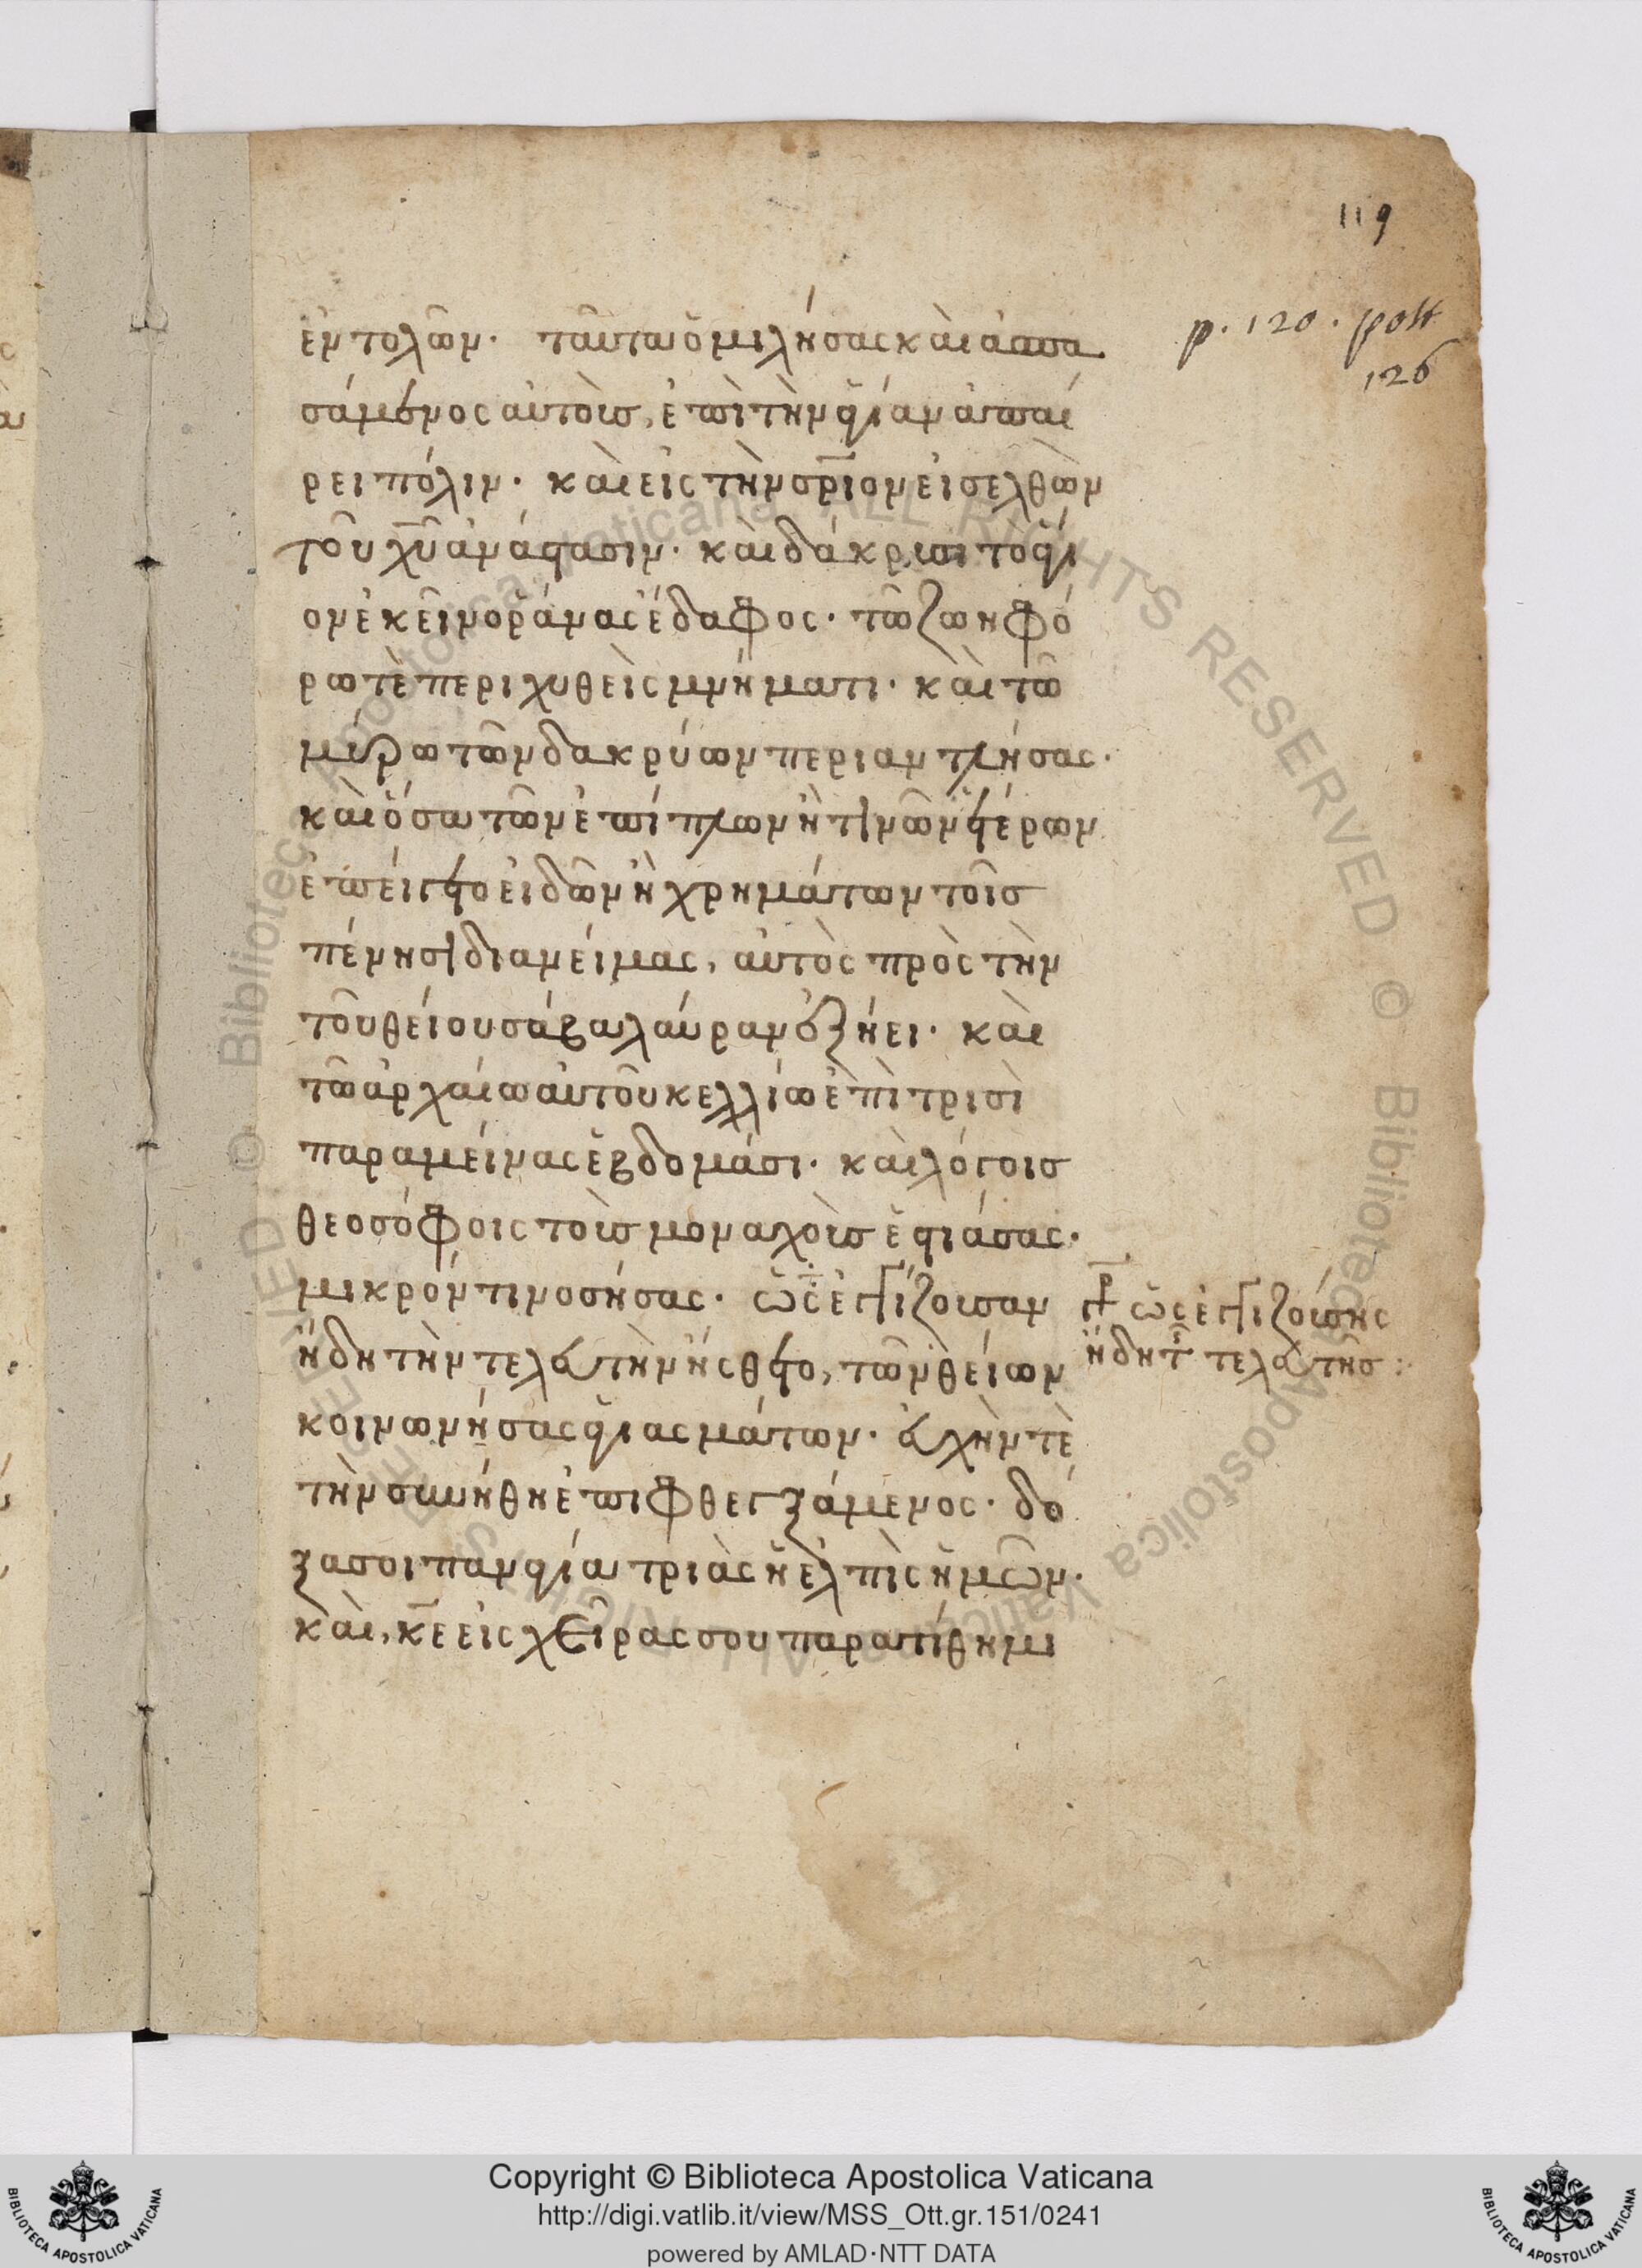 119
p. 120. post
126
ἐντολῶν· ταῦτα ὁμιλήσας καὶ ἀσπα
σάμενος αὐτοῖς, ἐπὶ τὴν ἁγίαν ἀπαί
ρει πόλιν· καὶ εἰς τὴν σρ̅ιον εἰσελθὼν
τοῦ χ̅υ̅ ἀνάστασιν· καὶ δάκρυσι τὸ ἅγι
ον ἐκεῖνο ῥάνας ἔδαφος· τῶ ζωηφό
ρω τὲ περιχυθεὶς μνήματι· καὶ τῶ
μύρω τῶν δακρύων περιαντλήσας·
καὶ ὅσα τῶν ἐπίπλων ἢ τινῶν ὑστέρων
τοῖς
πένησι διανείμας, αὐτὸς πρὸς τὴν
τοῦ θείου σάβα λαύραν ἐξήει· καὶ
τῶ ἀρχαίω αὐτοῦ κελλίω ἐπὶ τρισὶ
παραμείνας ἑβδομάσι· καὶ λόγοις
θεοσόφοις τοῖς μοναχοῖς ἑστιάσας·
μικρόν τι νοσήσας· ὡς ἐγγίζουσαν
ἤδη τὴν τελευτὴν ἤσθετο, τῶν θείων
κοινωνήσας ἁγιασμάτων· εὐχήν τὲ
τὴν συνήθη ἐπιφθεγξάμενος· δό
ξα σοι παναγία τριὰς ἡ ἐλπὶς ἡμῶν·
καὶ, κ̅ε̅ εἰς χεῖρας σου παρατίθημι
γρ ὡς ἐγγιζούσης
ἤδη τῆς τελευτῆς:
Copyright © Biblioteca Apostolica Vaticana
http://digi.vatlib.it/view/MSS_Ott.gr.151/0241
powered by AMLAD·NTT DATA
BIBLIOTECA APOSTOLICA VATICANA
BIBLIOTECA APOSTOLICA VATICANA